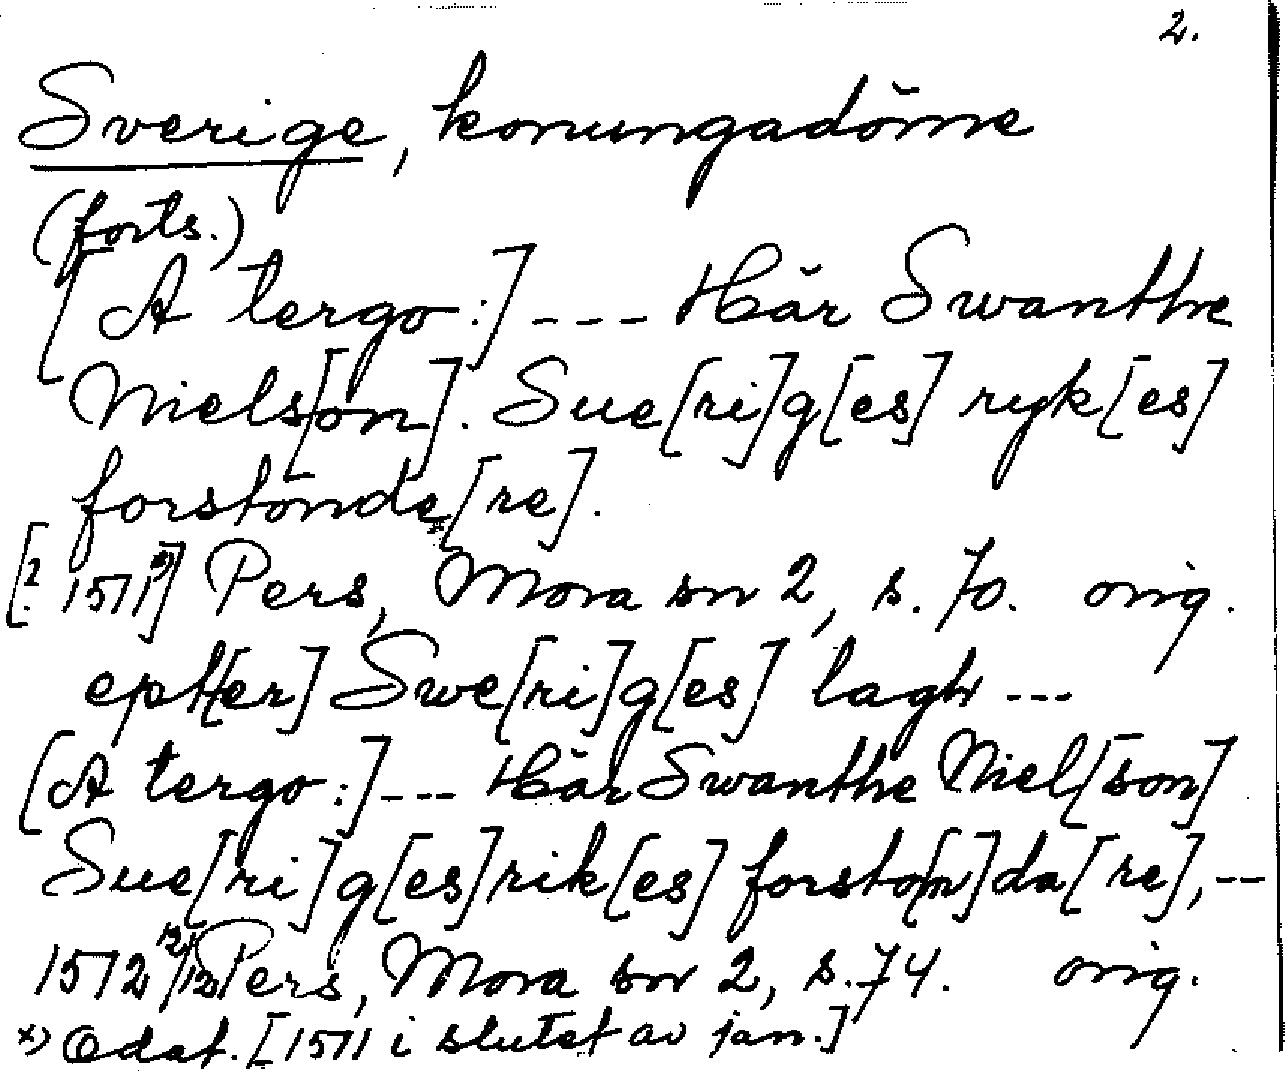 2.
Sverige, konungadöme
(forts.)
[A tergo:] --- Hår Swanthe
Niels[on]. Sue[ri]g[es] ryk[es]
forstonde[re].
[? 1511 *)] Pers, Mora sn 2, s. 70. orig.
epth[er] Swe[ri]g[es] lagh ---
[A tergo:] --- Hår Swanthe Niel[son]
Sue[ri]g[es] rik[es] forsto[n]da[re], --
1512 12/12 Pers, Mora sn 2, s. 74. orig.
x) Odat. [1511 i slutet av jan.]